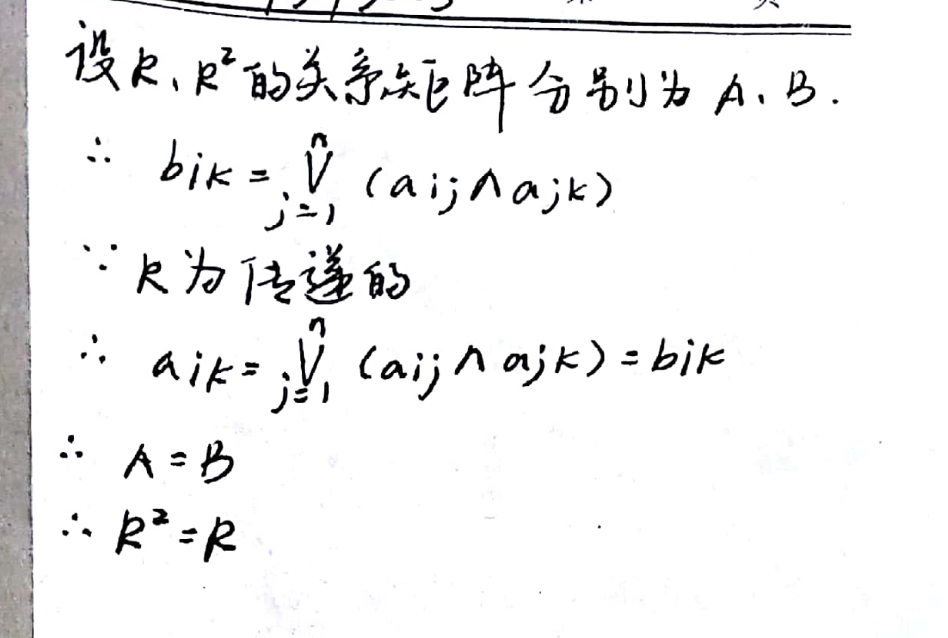 设R、R²的关系矩阵分别为A、B.
∴ bik = ⋁ⁿj=1 (aij∧ajk)
∵ R为传递的
∴ aik = ⋁ⁿj=1 (aij∧ajk) = bik
∴ A=B
∴ R²=R